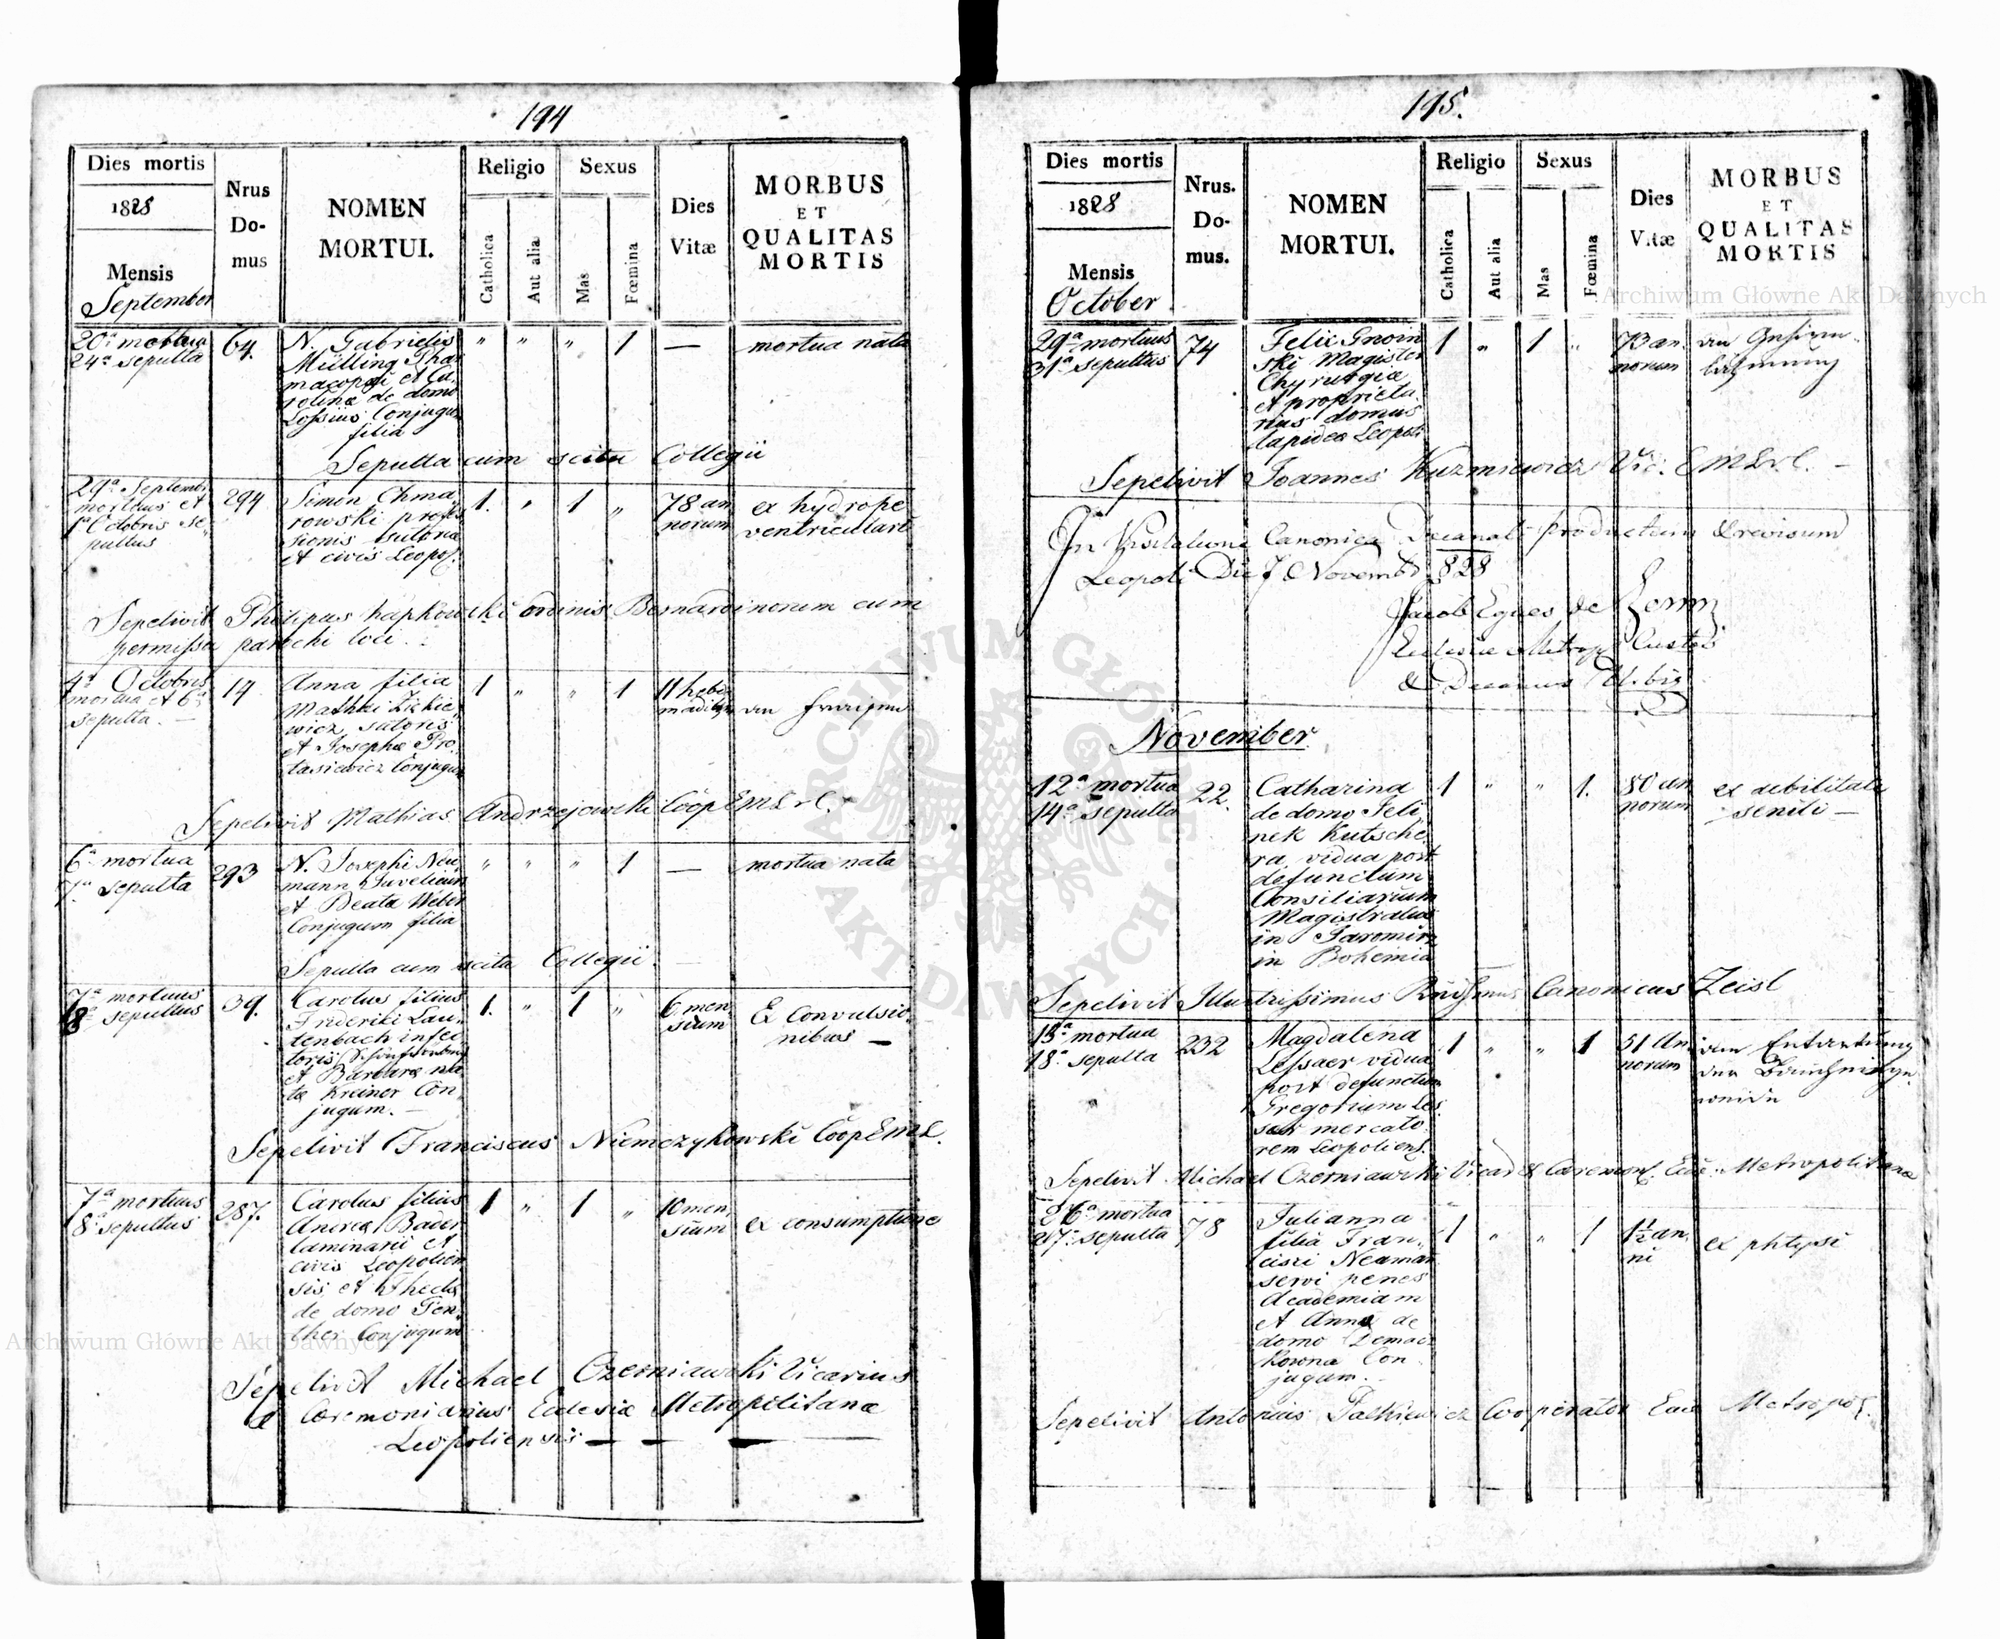 194
Dies mortis
1828
Mensis
September
Nrus
Do-
mus
NOMEN
MORTUI.
Religio
Catholica
Aut alia
Sexus
Mas
Fœmina
Dies
Vitæ
MORBUS
ET
QUALITAS
MORTIS
20a mortua
24a sepulta
64.
N. Gabrielis
Mülling Phar
macopæi et Ca,
rolinæ de domo
Lossius Conjugum
filia
" " " 1 —
mortua nata
Sepulta cum scitu Collegii
29a Septembr
mortuus et
1a Octobris se,
pultus
294
Simon Chma
rowski profes
sionis sutoriæ
et civis Leopol.
1. " 1 "
78 an
norum
ex hydrope
ventriculari
Sepelivit Philipus Hapkowski ordinis Bernardinorum cum
permissu parochi loci.
4a Octobris
mortua et 6a
sepulta. —
14
Anna filia
Mathæi
wicz sutoris
et Josephæ Pro,
tasiewicz Conjugum
1 " " 1
11 hebdo
madibus
an Fraisen
Sepelivit Mathias Andrzejowski Coop EMLrl.
6a mortua
7a sepulta
293
N. Josephi Neu
mann Juvelieur
et Beata Weber
Conjugum filia
" " " 1 —
mortua nata
Sepulta cum scitu Collegii. —
7a mortuus
8a sepultus
39.
Carolus filius
Friderici Lau,
tenbach infec
toris
et Barbaræ na
tæ Kreiner Con,
jugum. —
1. " 1 "
6 men
sium
Ex Convulsio,
nibus —
Sepelivit Franciscus Niemczykowski Coop EML.
7a mortuus
8a sepultus
287.
Carolus filius
Andreæ Bauer
laminarii et
civis Leopolien
sis et Theclæ
de domo Gen,
ther Conjugum
1 " 1 "
10 men,
sium
ex consumptione
Sepelivit Michael Czerniawski Vicarius
& Cæremoniarius Ecclesiæ Metropolitanæ
Leopoliensis — — — —
195.
Dies mortis
1828
Mensis
October
Nrus.
Do-
mus.
NOMEN
MORTUI.
Religio
Catholica
Aut alia
Sexus
Mas
Fœmina
Dies
Vitæ
MORBUS
ET
QUALITAS
MORTIS
29a mortuus
31a sepultus
74
Felix Gnoin
ski Magister
Chyrurgiæ
et proprieta,
rius domus
lapideæ Leopoli
1 " 1 "
73 an.
norum
an Gehirn,
lähmung
Sepelivit Joannes Kuzmiewicz Vic. EMLrl. —
In Visitatione Canonica Decanali productum & revisum
Leopoli Die 7 Novembr 828
Jacob Eques de
Ecclesiæ Metrop Custos
& Decanus
November
12a mortua
14a sepulta
22.
Catharina
de domo Jeli
nek Kutsche,
ra, vidua post
defunctum
Consiliarium
Magistratus
in Jaromirz
in Bohemia
1 " " 1.
80 an
norum
ex debilitate
senili —
Sepelivit Illustrissimus Canonicus Zeisl
15a mortua
18a sepulta
232
Magdalena
Lessaer vidua
post defunctum
Gregorium Les
saer mercato
rem Leopoliens.
1 " " 1
51 An
norum
an Entartung
der Baucheinge,
weide
Sepelivit Michael Czerniawski Vicar & Cæremon. Ecc. Metropolitanæ
26a mortua
27a sepulta
78
Julianna
filia Fran,
cisci Neuman
servi penes
Academiam
et Annæ de
domo Domac
kowna Con,
jugum. —
1 " " 1
1½ an,
ni
ex phtysi
Sepelivit Antonius Cooperator Ecc Metropol.
Archiwum Główne Akt Dawnych
Archiwum Główne Akt Dawnych
ARCHIWUM GŁÓWNE
AKT DAWNYCH